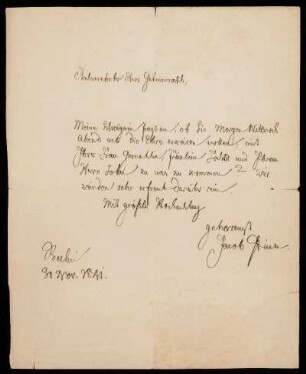 Meine Schwägerin fragt an, ob Sie Morgen Mittwoch
abend uns die Ehre erweisen wollen, mit
Ihrer Frau Gemahlin, Fräulein und Ihrem
Herrn Sohn zu uns zu kommen wir
würden sehr erfreut darüber sein.
Mit größter Hochachtung
gehorsamst
Jacob Grimm
Berlin
Nov. 1841.